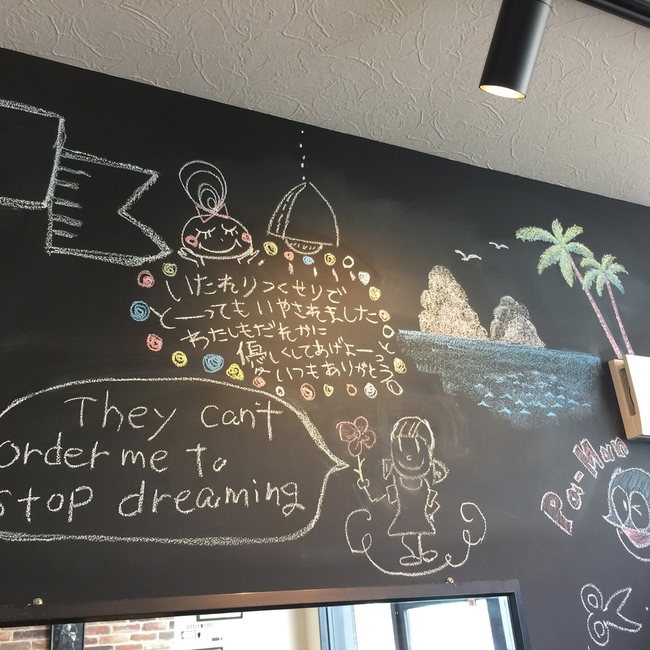 いたれりつくせりで
とーってもいやされました
わたしもだれかに
優しくしてあげよーっと
いつもありがとう
They cant
order me to
stop dreaming
Pa-Man